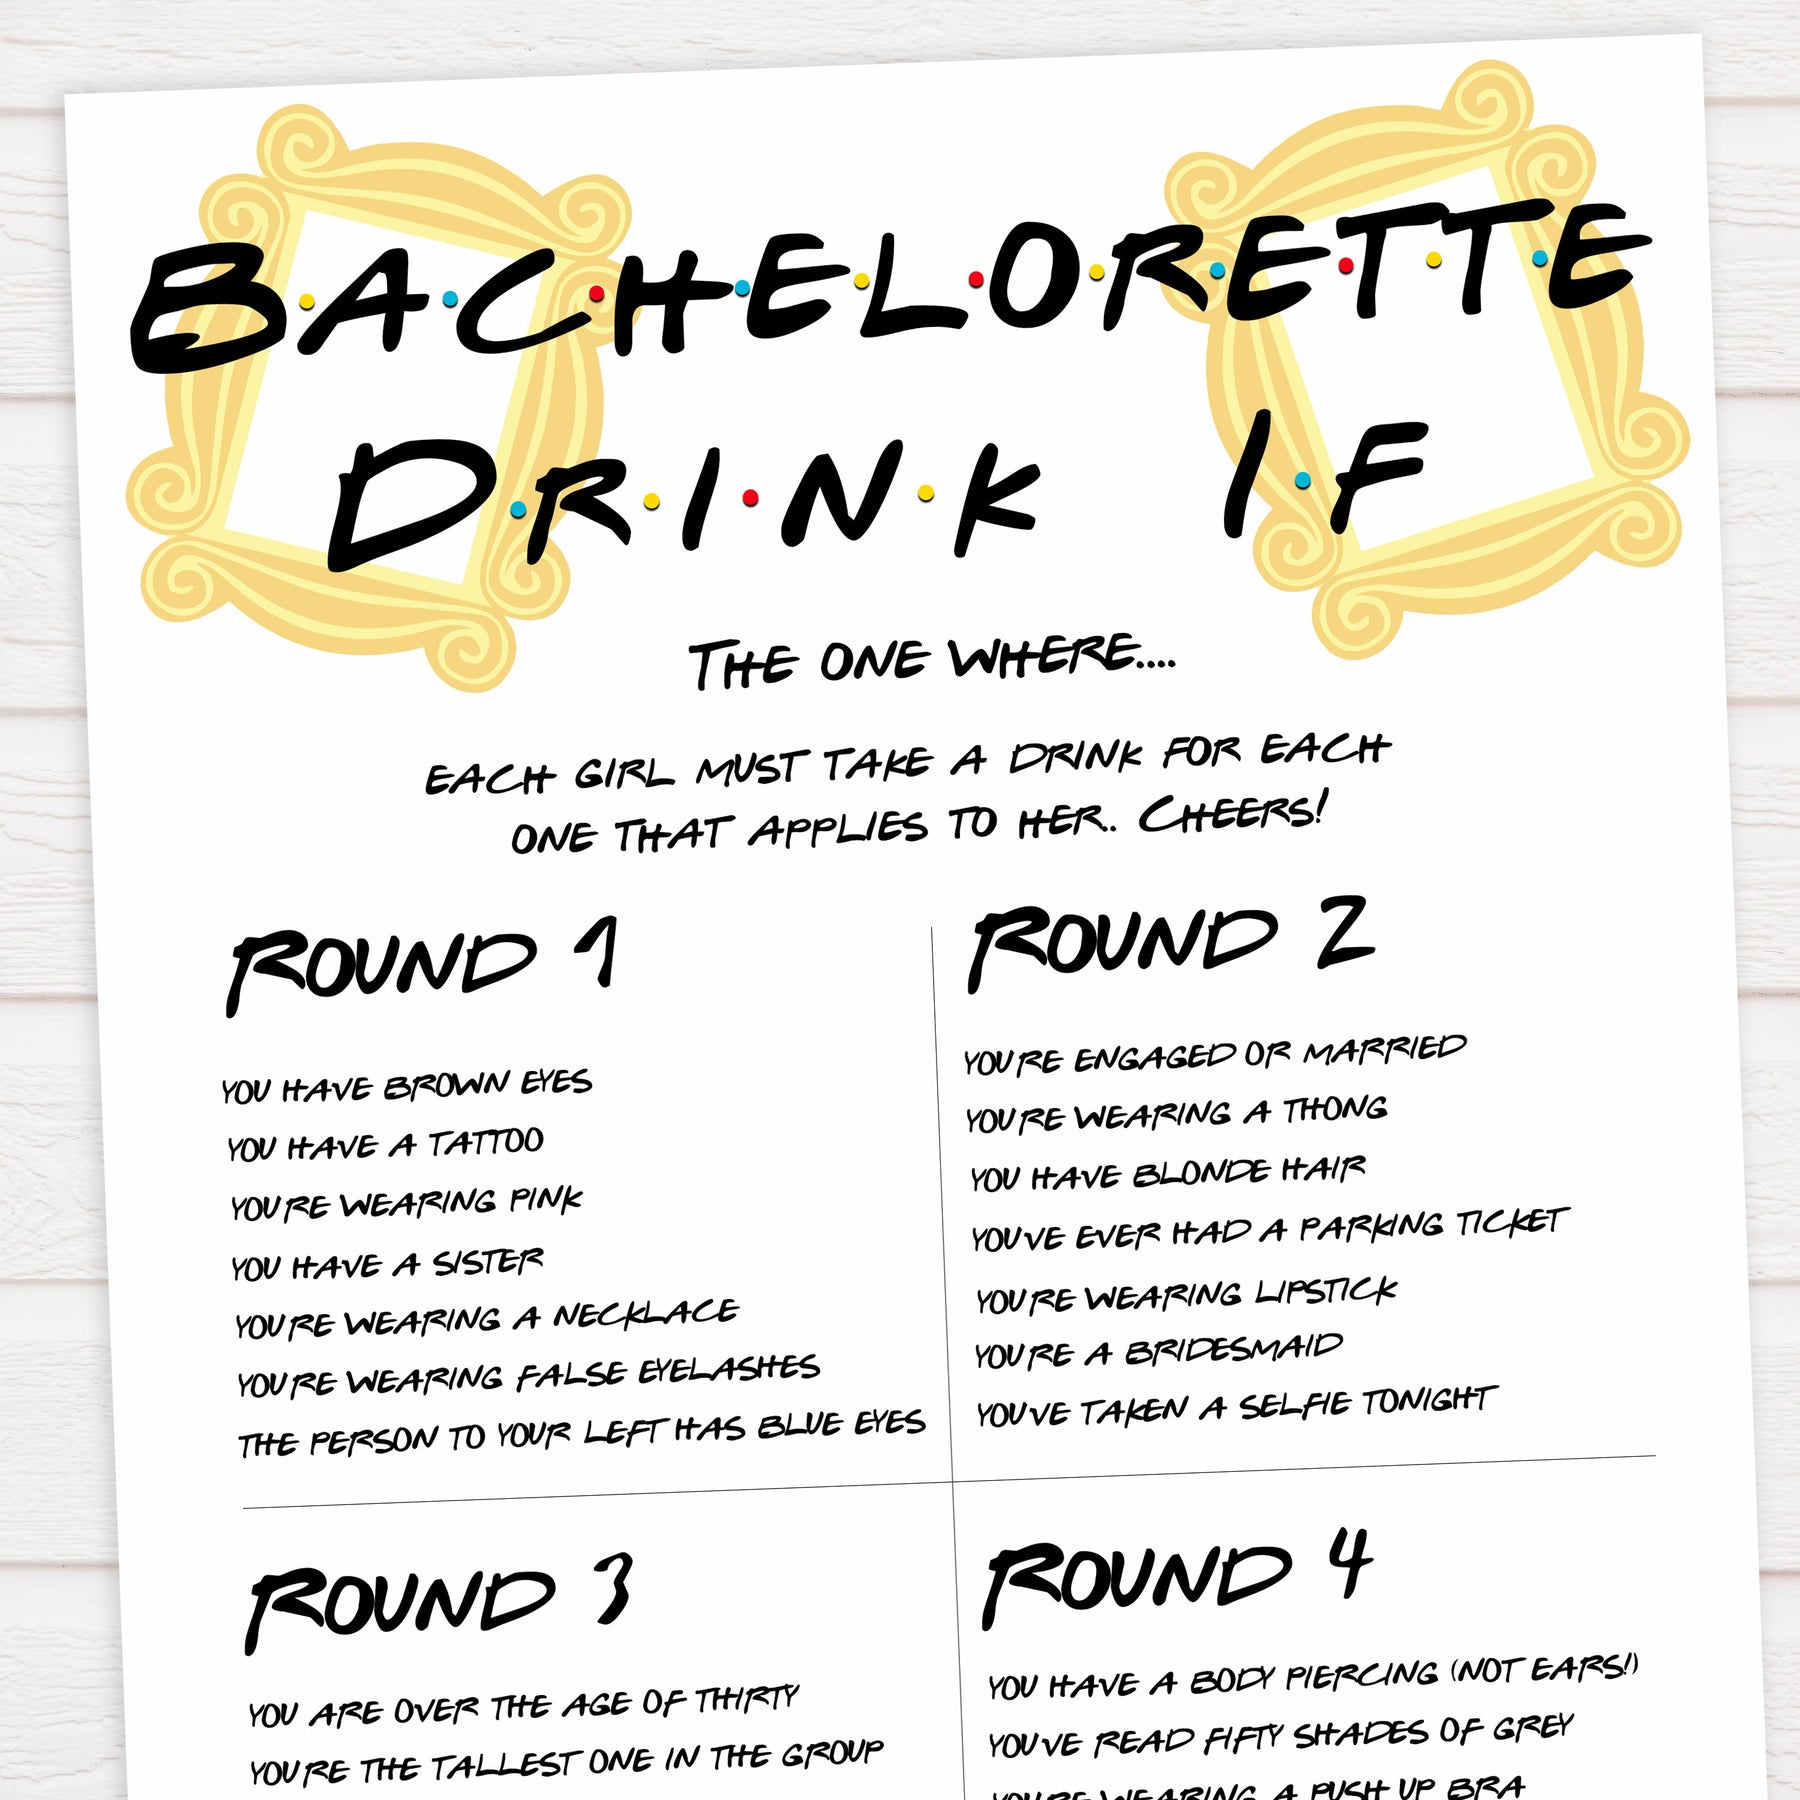 B·A·C·H·E·L·O·R·E·T·T·E
D·R·I·N·K I·F
THE ONE WHERE....
EACH GIRL MUST TAKE A DRINK FOR EACH
ONE THAT APPLIES TO HER.. CHEERS!
ROUND 1
YOU HAVE BROWN EYES
YOU HAVE A TATTOO
YOU'RE WEARING PINK
YOU HAVE A SISTER
YOU'RE WEARING A NECKLACE
YOU'RE WEARING FALSE EYELASHES
THE PERSON TO YOUR LEFT HAS BLUE EYES
ROUND 2
YOU'RE ENGAGED OR MARRIED
YOU'RE WEARING A THONG
YOU HAVE BLONDE HAIR
YOU'VE EVER HAD A PARKING TICKET
YOU'RE WEARING LIPSTICK
YOU'RE A BRIDESMAID
YOU'VE TAKEN A SELFIE TONIGHT
ROUND 3
YOU ARE OVER THE AGE OF THIRTY
YOU'RE THE TALLEST ONE IN THE GROUP
ROUND 4
YOU HAVE A BODY PIERCING (NOT EARS!)
YOU'VE READ FIFTY SHADES OF GREY
YOU'RE WEARING A PUSH UP BRA